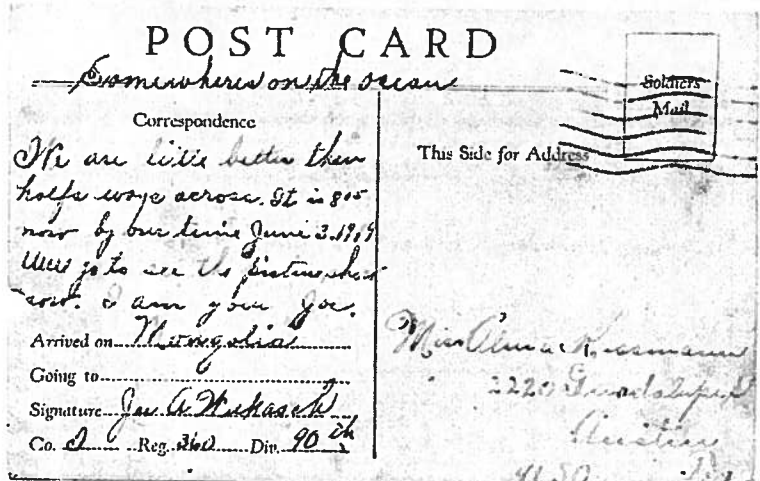 POST CARD
Somewheres on the ocean
Soldiers
Mail
Correspondence
This Side for Address
We are little better then
halfe waye acrose. It is 8 05
now by our time June 3. 1919
Will go to see the picture show
now. I am your Joe.
Arrived on Mongolia
Going to
Signature Joe A Wukasch
Co. Reg. 360 Div. 90 th
Miss Alma
2220 Guadalupe
Austin